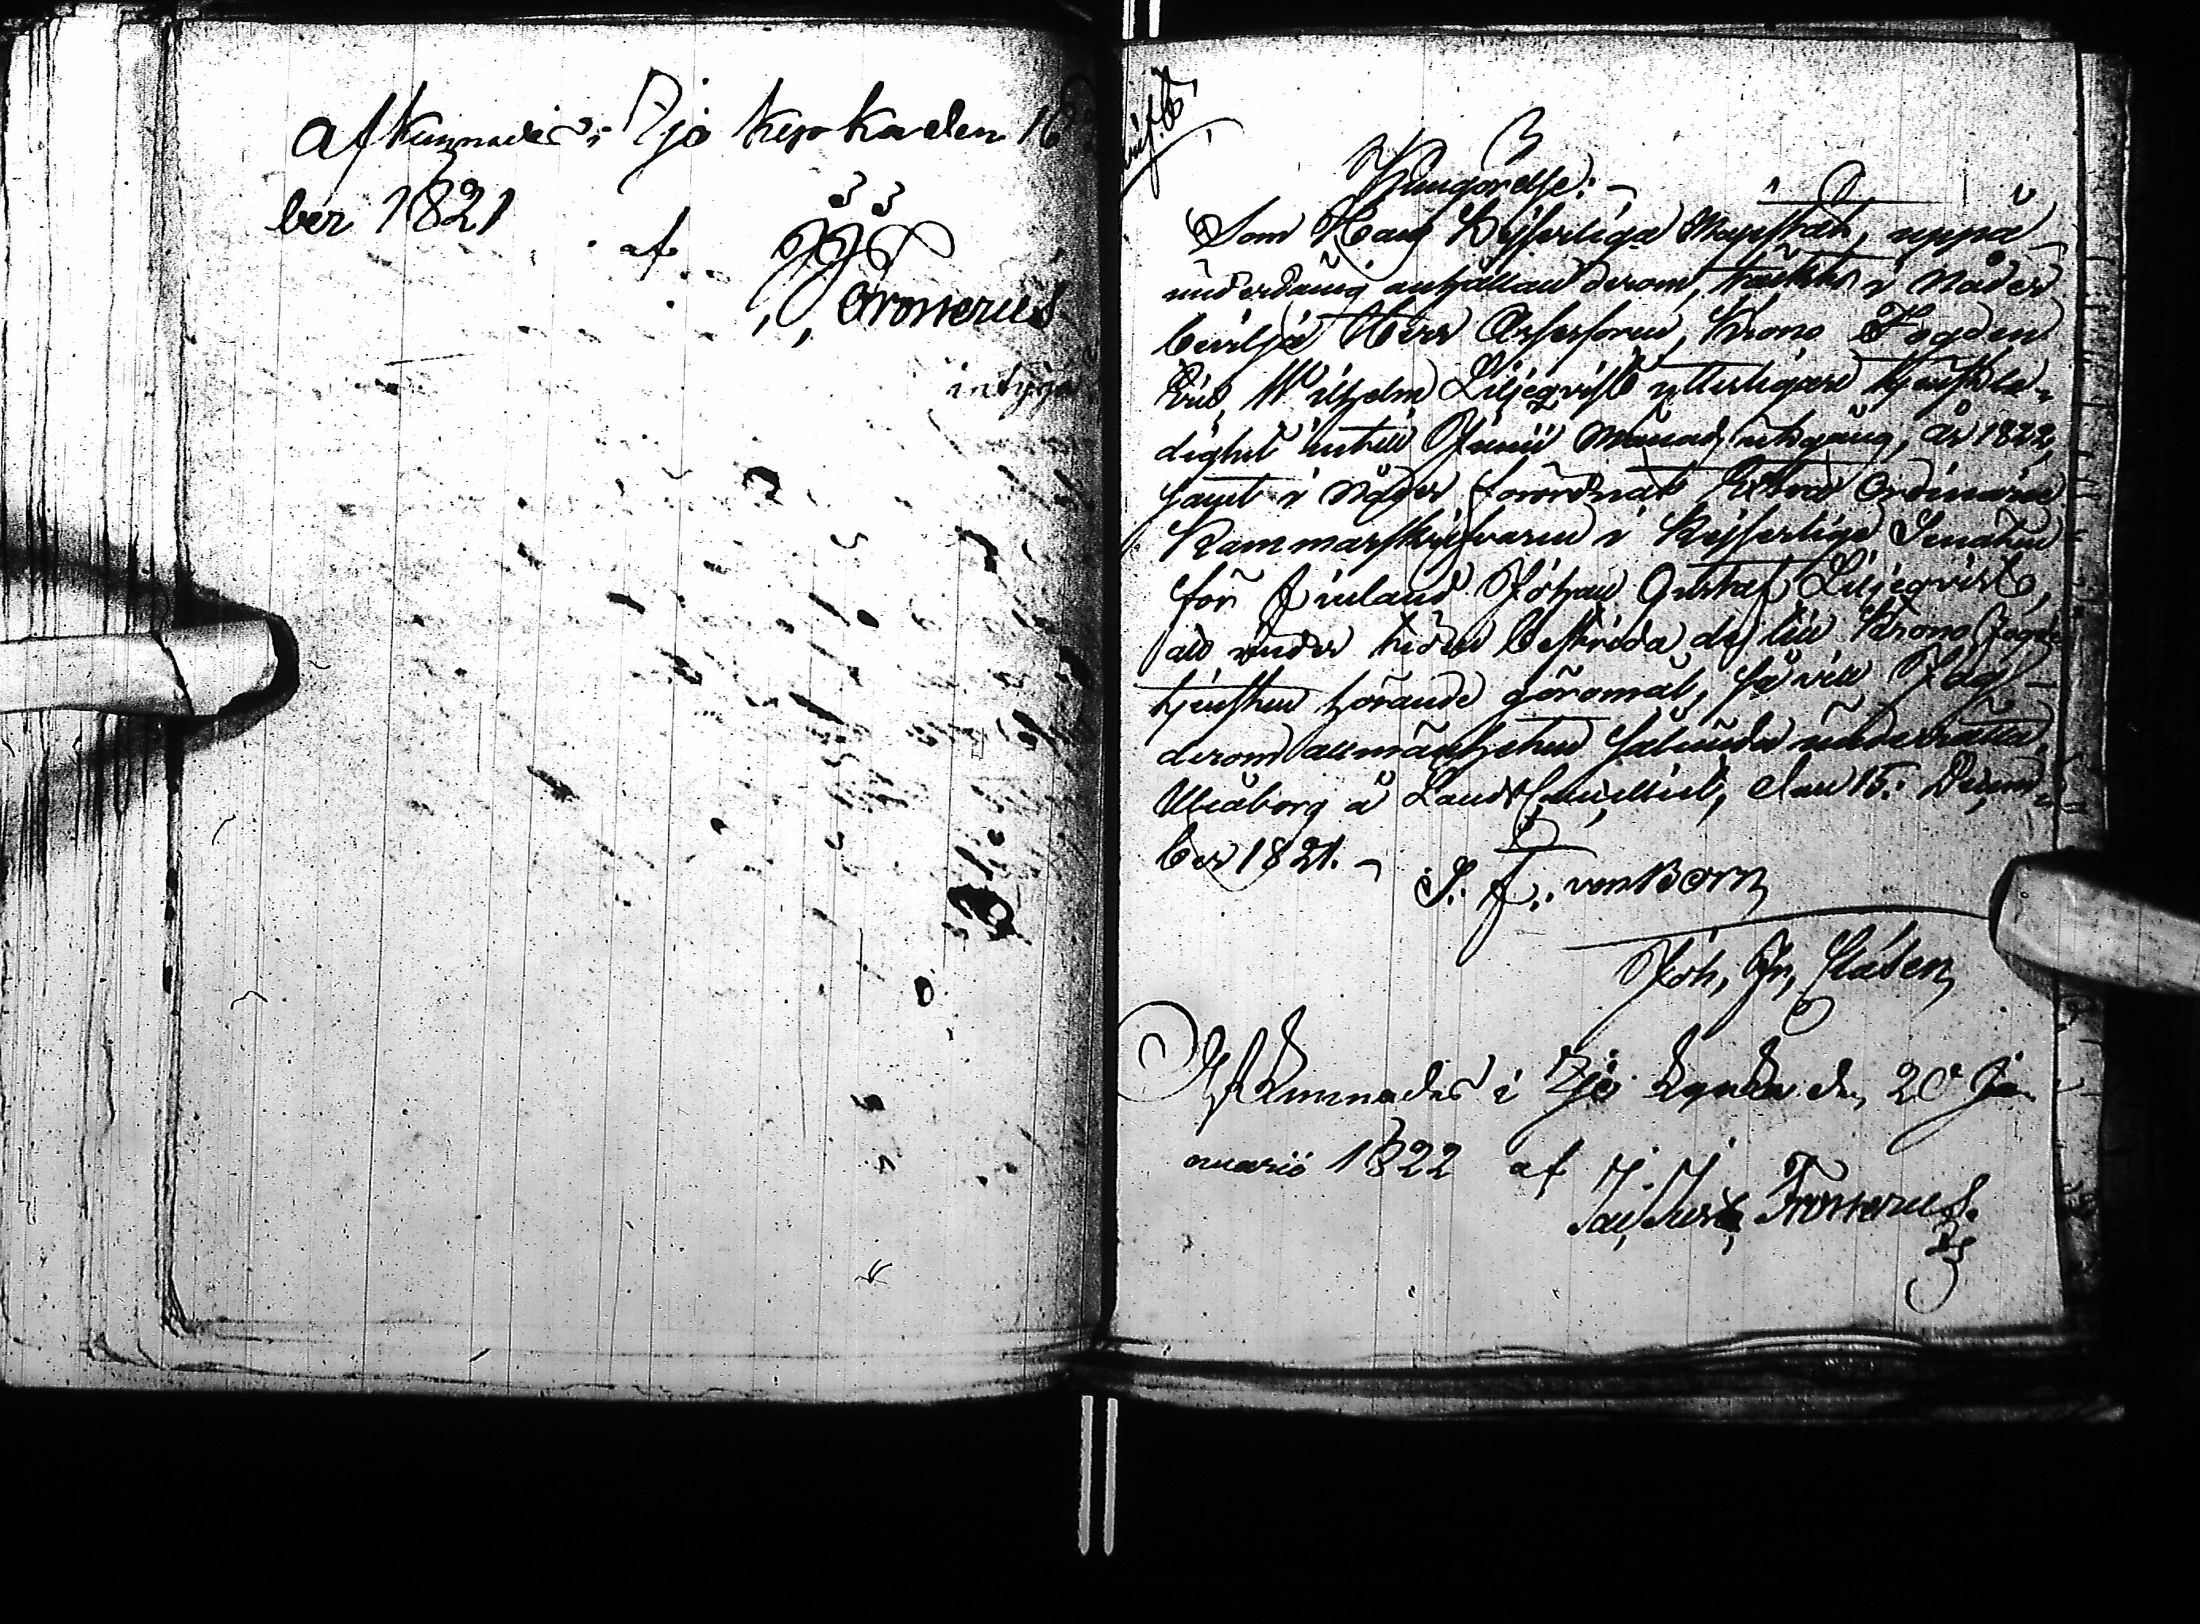 afkunnades i Ijo kyrka den 16
ber 1821
af J J
Frosterus
intygar
Kungörelse:
Som Hans Kejserliga Majestät, uppå
underdånig anhållan derom, täckts i Nåder
bevilja Herr Assessoren, Krono Fogden
Eric Wilhelm Liljeqvist ytterligare tjenstle-
dighet intill Junii Månads utgång, år 1822,
samt i Nåder förordnat Extra Ordinarie
Kammarskrifvaren i Kejserliga Senaten
för Finland Johan Gustaf Liljeqvist,
att under tiden bestrida de till Krono Fogde
tjensten hörande göromål, så vill Jag
derom allmänheten sålunda underrätta.
Uleåborg å Landt Cancelliet, den 15. Decem-
ber 1821.
S. F. von Born
Joh, Gr, Clásen
Afkunnades i Ijo kyrka den 20 Ja-
nuarii 1822 af J. J.
Frosterus.